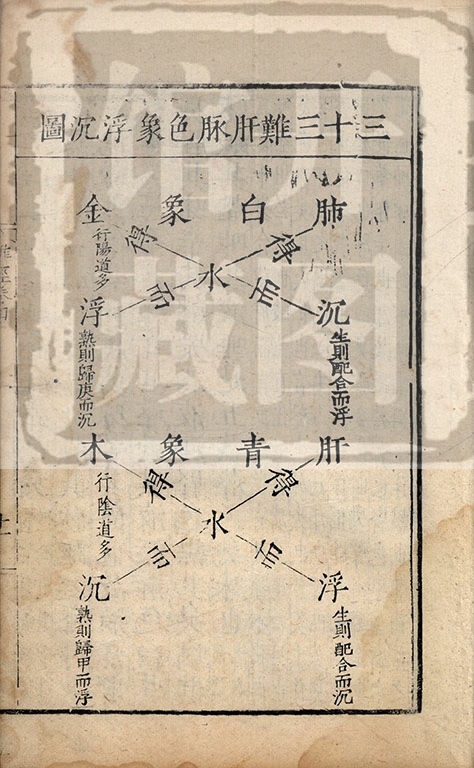 三十三難肝脉色象浮沉圖
肺白象金
得
得
行陽道多
水
而
而
沉
浮
生則配合而浮
熟則歸庚而沉
肝青象木
得
得
行陰道多
水
而
而
浮
沉
生則配合而沉
熟則歸甲而浮
館
藏
圖